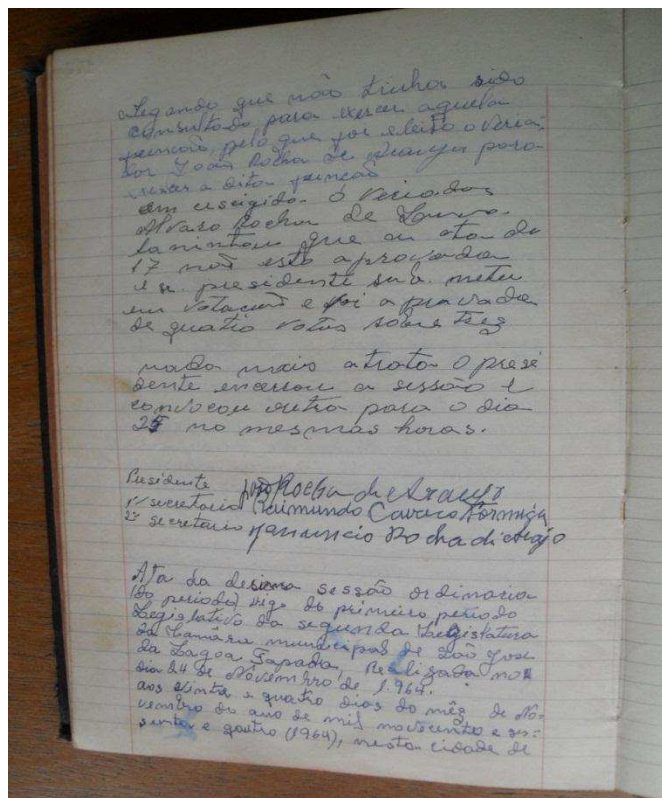 alegando que não tinha sido
consultado para exercer aquela
função, pelo que foi eleito o verea-
dor João Rocha de Araujo para
a dita função
em cseigida o vereador
Alvaro Rocha de
que a ata do
17 não está aprovada
e sr. presidente sub meteu
em votação e foi a provada
de quatro votos sobre trez
nada mais a tratar O presi
dente encerrou a sessão e
convocou outra para o dia
25 no mesmas horas.
Presidente João Rocha de Araujo
1º secretario Raimundo Formiga
2º secretario Rocha de Araújo
Ata da desima sessão ordinaria
(do periodo) digo do primeiro periodo
Legislativo da segunda Legislatura
da Camára municipal de São José
da Lagoa Tapada, Realizada no
dia 24 de Novembro de 1.964.
aos vinte e quatro dias do mês de No-
vembro do ano de mil novecento e ses-
senta e quatro (1964), nesta cidade de